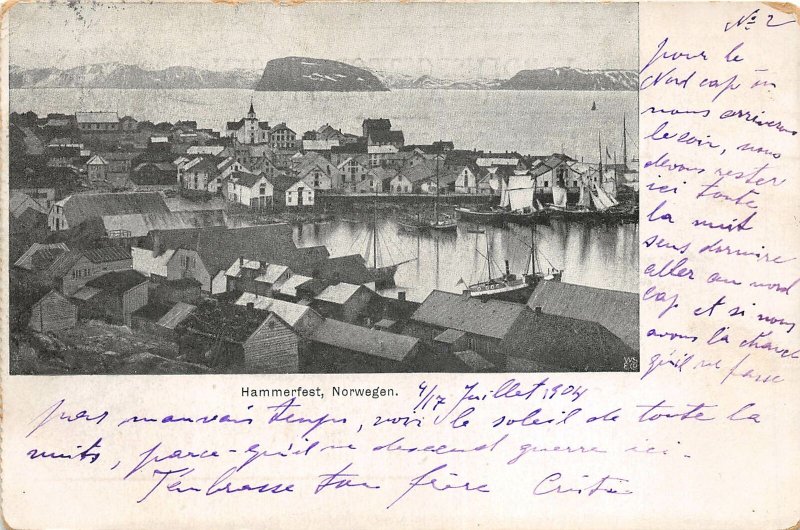 No 2
pour le
Nord cap où
nous arriverons
le soir, nous
devons rester
ici toute
la nuit
sens dormire
aller au nord
cap et si nous
avons la chance
qu'il ne fasse
Hammerfest, Norwegen.
4/17 Juillet 1904
pas mauvais temps, voir le soleil de toute la
nuits, parce-qu'il ne descend guerre ici.
T'enbrasse ton frère